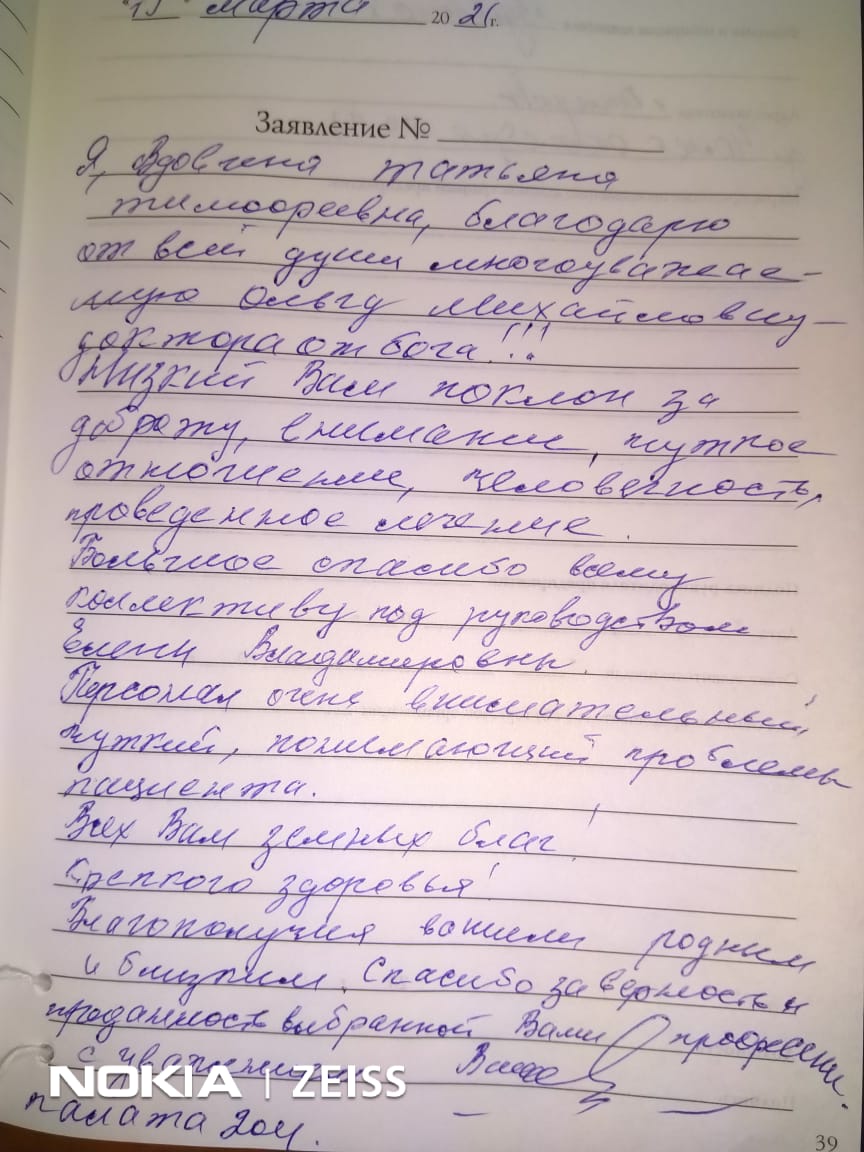 15 марта 2021г.
Заявление №
Я, Вдовчена Татьяна
Тимофеевна, благодарю
от всей души многоуважае-
мую Ольгу Михайловну-
доктора от бога!!!
Низкий Вам поклон за
доброту, внимание, чуткое
отношение, человечность,
проведенное лечение.
Большое спасибо всему
коллективу под руководством
Елены Владимировны.
Персонал очень внимательный,
чуткий, понимающий проблемы
пациента.
Всех Вам земных благ!
Крепкого здоровья!
Благополучия вашим родным
и близким. Спасибо за верность и
преданность выбранной Вами профессии.
С уважением
NOKIA | ZEISS
палата 204.
39